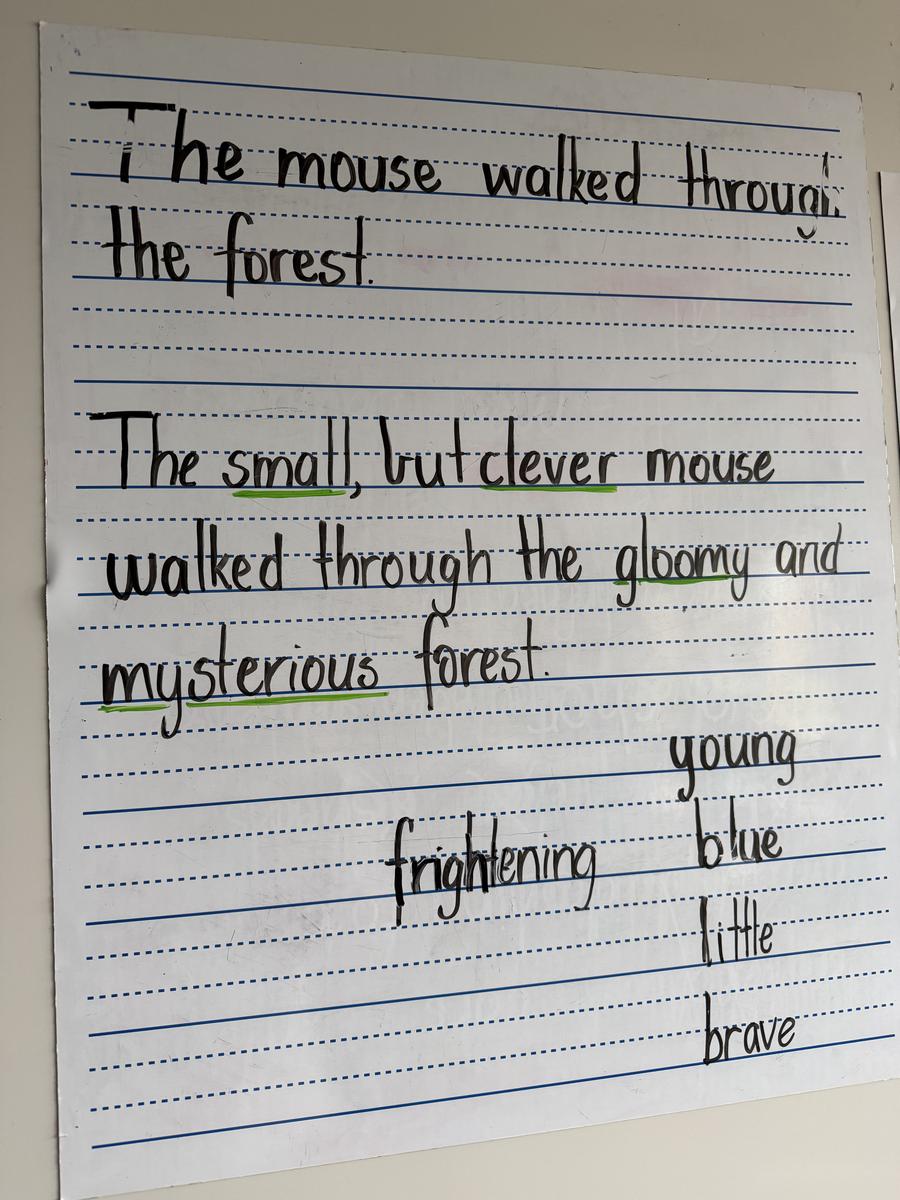 The mouse walked through
the forest.
The small, but clever mouse
walked through the gloomy and
mysterious forest.
young
frightening blue
little
brave